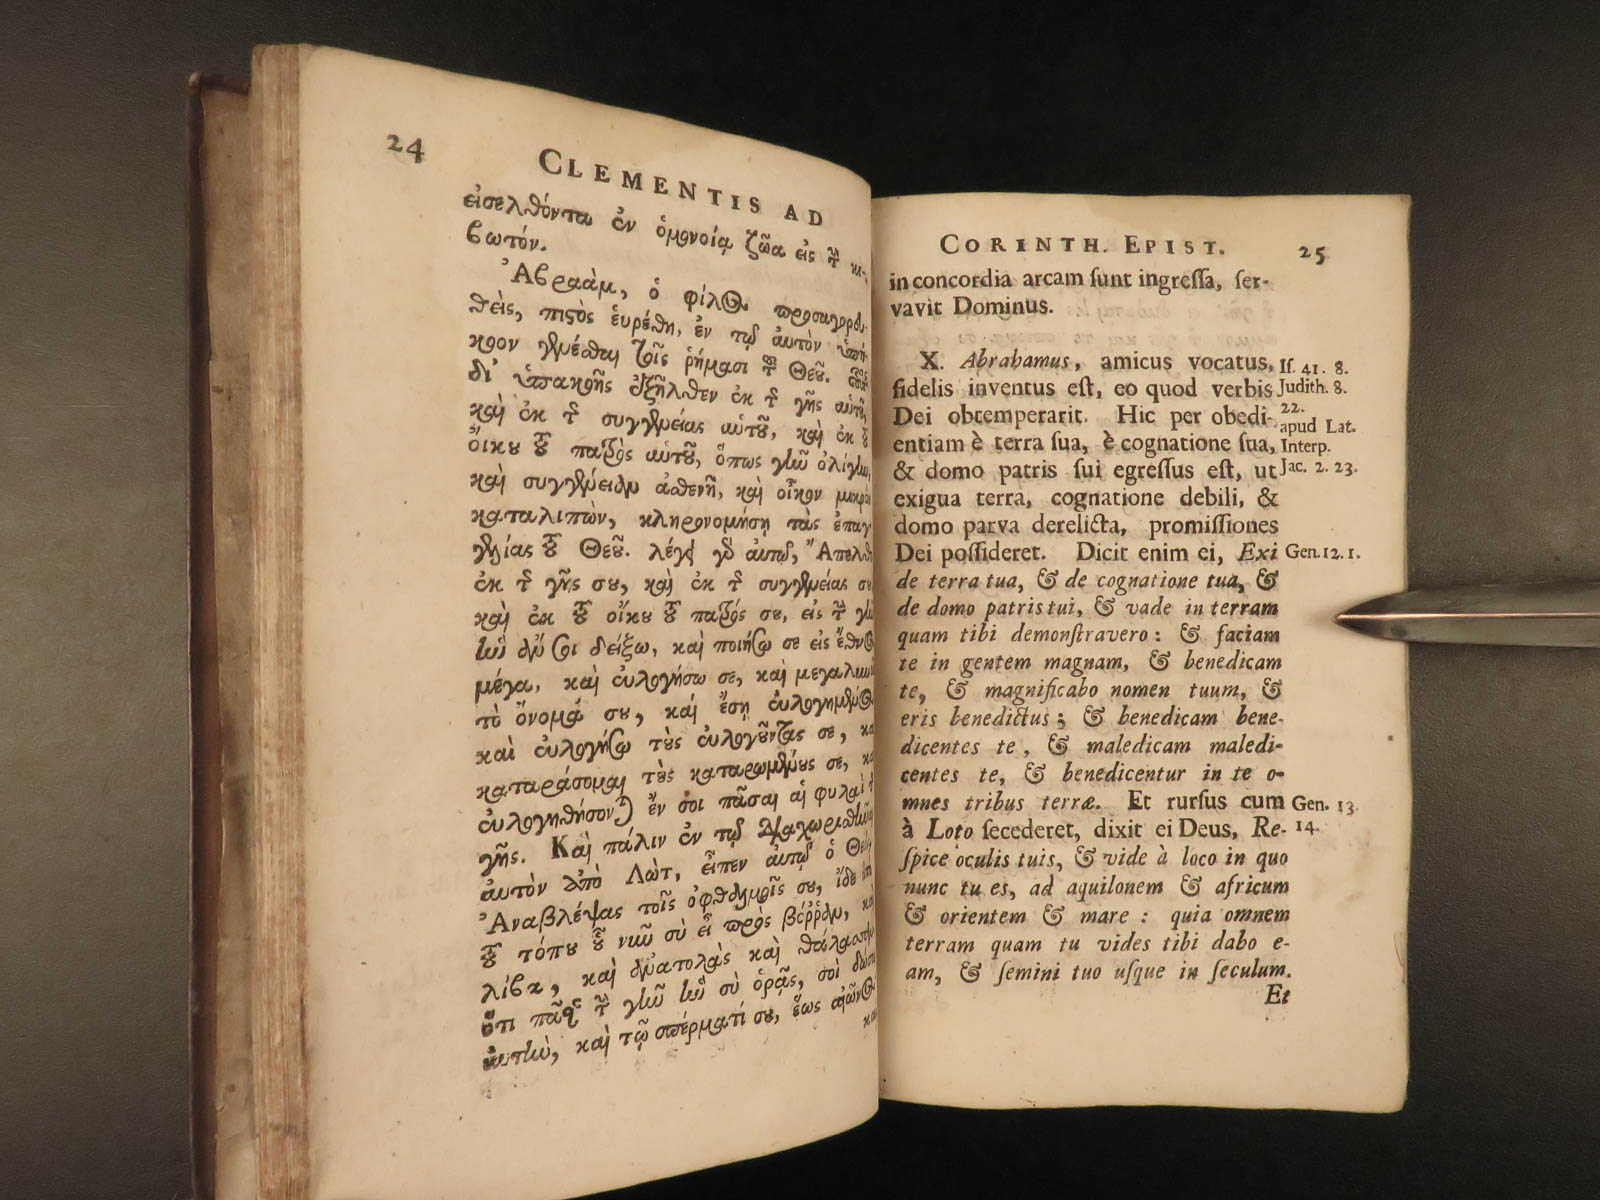 24
CLEMENTIS AD
εἰσελθόντα ἐν ὁμονοίᾳ ζῶα εἰς τὴν κι-
βωτόν.
Ἀβραὰμ, ὁ φίλος προσαγορευ-
θεὶς, πιστὸς εὑρέθη, ἐν τῷ αὐτὸν ὑπή-
κοον γενέσθαι τοῖς ῥήμασι τοῦ Θεοῦ.
δι' ὑπακοῆς ἐξῆλθεν ἐκ τῆς γῆς αὐτοῦ,
καὶ ἐκ τῆς συγγενείας αὐτοῦ, καὶ ἐκ τοῦ
οἴκου τοῦ πατρὸς αὐτοῦ, ὅπως γῆν ὀλίγην,
καὶ συγγένειαν ἀσθενῆ, καὶ οἶκον μικρὸν
καταλιπὼν, κληρονομήσῃ τὰς ἐπαγ
γελίας τοῦ Θεοῦ. λέγει γὰρ αὐτῷ, Ἄπελθε
ἐκ τῆς γῆς σου, καὶ ἐκ τῆς συγγενείας σου
καὶ ἐκ τοῦ οἴκου τοῦ πατρός σου, εἰς τὴν γῆν
ἣν ἄν σοι δείξω, καὶ ποιήσω σε εἰς ἔθνος
μέγα, καὶ εὐλογήσω σε, καὶ μεγαλυνῶ
τὸ ὄνομά σου, καὶ ἔσῃ εὐλογημένος
καὶ εὐλογήσω τοὺς εὐλογοῦντας σε, καὶ
καταράσομαι τοὺς καταρωμένους σε, καὶ
εὐλογηθήσονται ἔν σοι πᾶσαι αἱ φυλαὶ τῆς
γῆς. Καὶ πάλιν ἐν τῷ διαχωρισθῆναι
αὐτὸν ἀπὸ Λὼτ, εἶπεν αὐτῷ ὁ Θεὸς,
Ἀναβλέψας τοῖς ὀφθαλμοῖς σου, ἴδε ἀπὸ
τοῦ τόπου οὗ νῦν σὺ εἶ πρὸς βοῤῥᾶν, καὶ
λίβα, καὶ ἀνατολὰς καὶ θάλασσαν
ὅτι πᾶσαν τὴν γῆν ἣν σὺ ὁρᾷς, σοὶ δώσω
αὐτὴν, καὶ τῷ σπέρματί σου, ἕως αἰῶνος
καὶ
CORINTH. EPIST. 25
in concordia arcam sunt ingressa, ser-
vavit Dominus.
X. Abrahamus, amicus vocatus,
fidelis inventus est, eo quod verbis
Dei obtemperarit. Hic per obedi-
entiam è terra sua, è cognatione sua,
& domo patris sui egressus est, ut
exigua terra, cognatione debili, &
domo parva derelicta, promissiones
Dei possideret. Dicit enim ei, Exi
de terra tua, & de cognatione tua, &
de domo patris tui, & vade in terram
quam tibi demonstravero: & faciam
te in gentem magnam, & benedicam
te, & magnificabo nomen tuum, &
eris benedictus; & benedicam bene-
dicentes te, & maledicam maledi-
centes te, & benedicentur in te o-
mnes tribus terræ. Et rursus cum
à Loto secederet, dixit ei Deus, Re-
spice oculis tuis, & vide à loco in quo
nunc tu es, ad aquilonem & africum
& orientem & mare: quia omnem
terram quam tu vides tibi dabo e-
am, & semini tuo usque in seculum.
Et
Is. 41. 8.
Judith. 8.
22.
apud Lat.
Interp.
Jac. 2. 23.
Gen. 12. 1.
Gen. 13.
14.